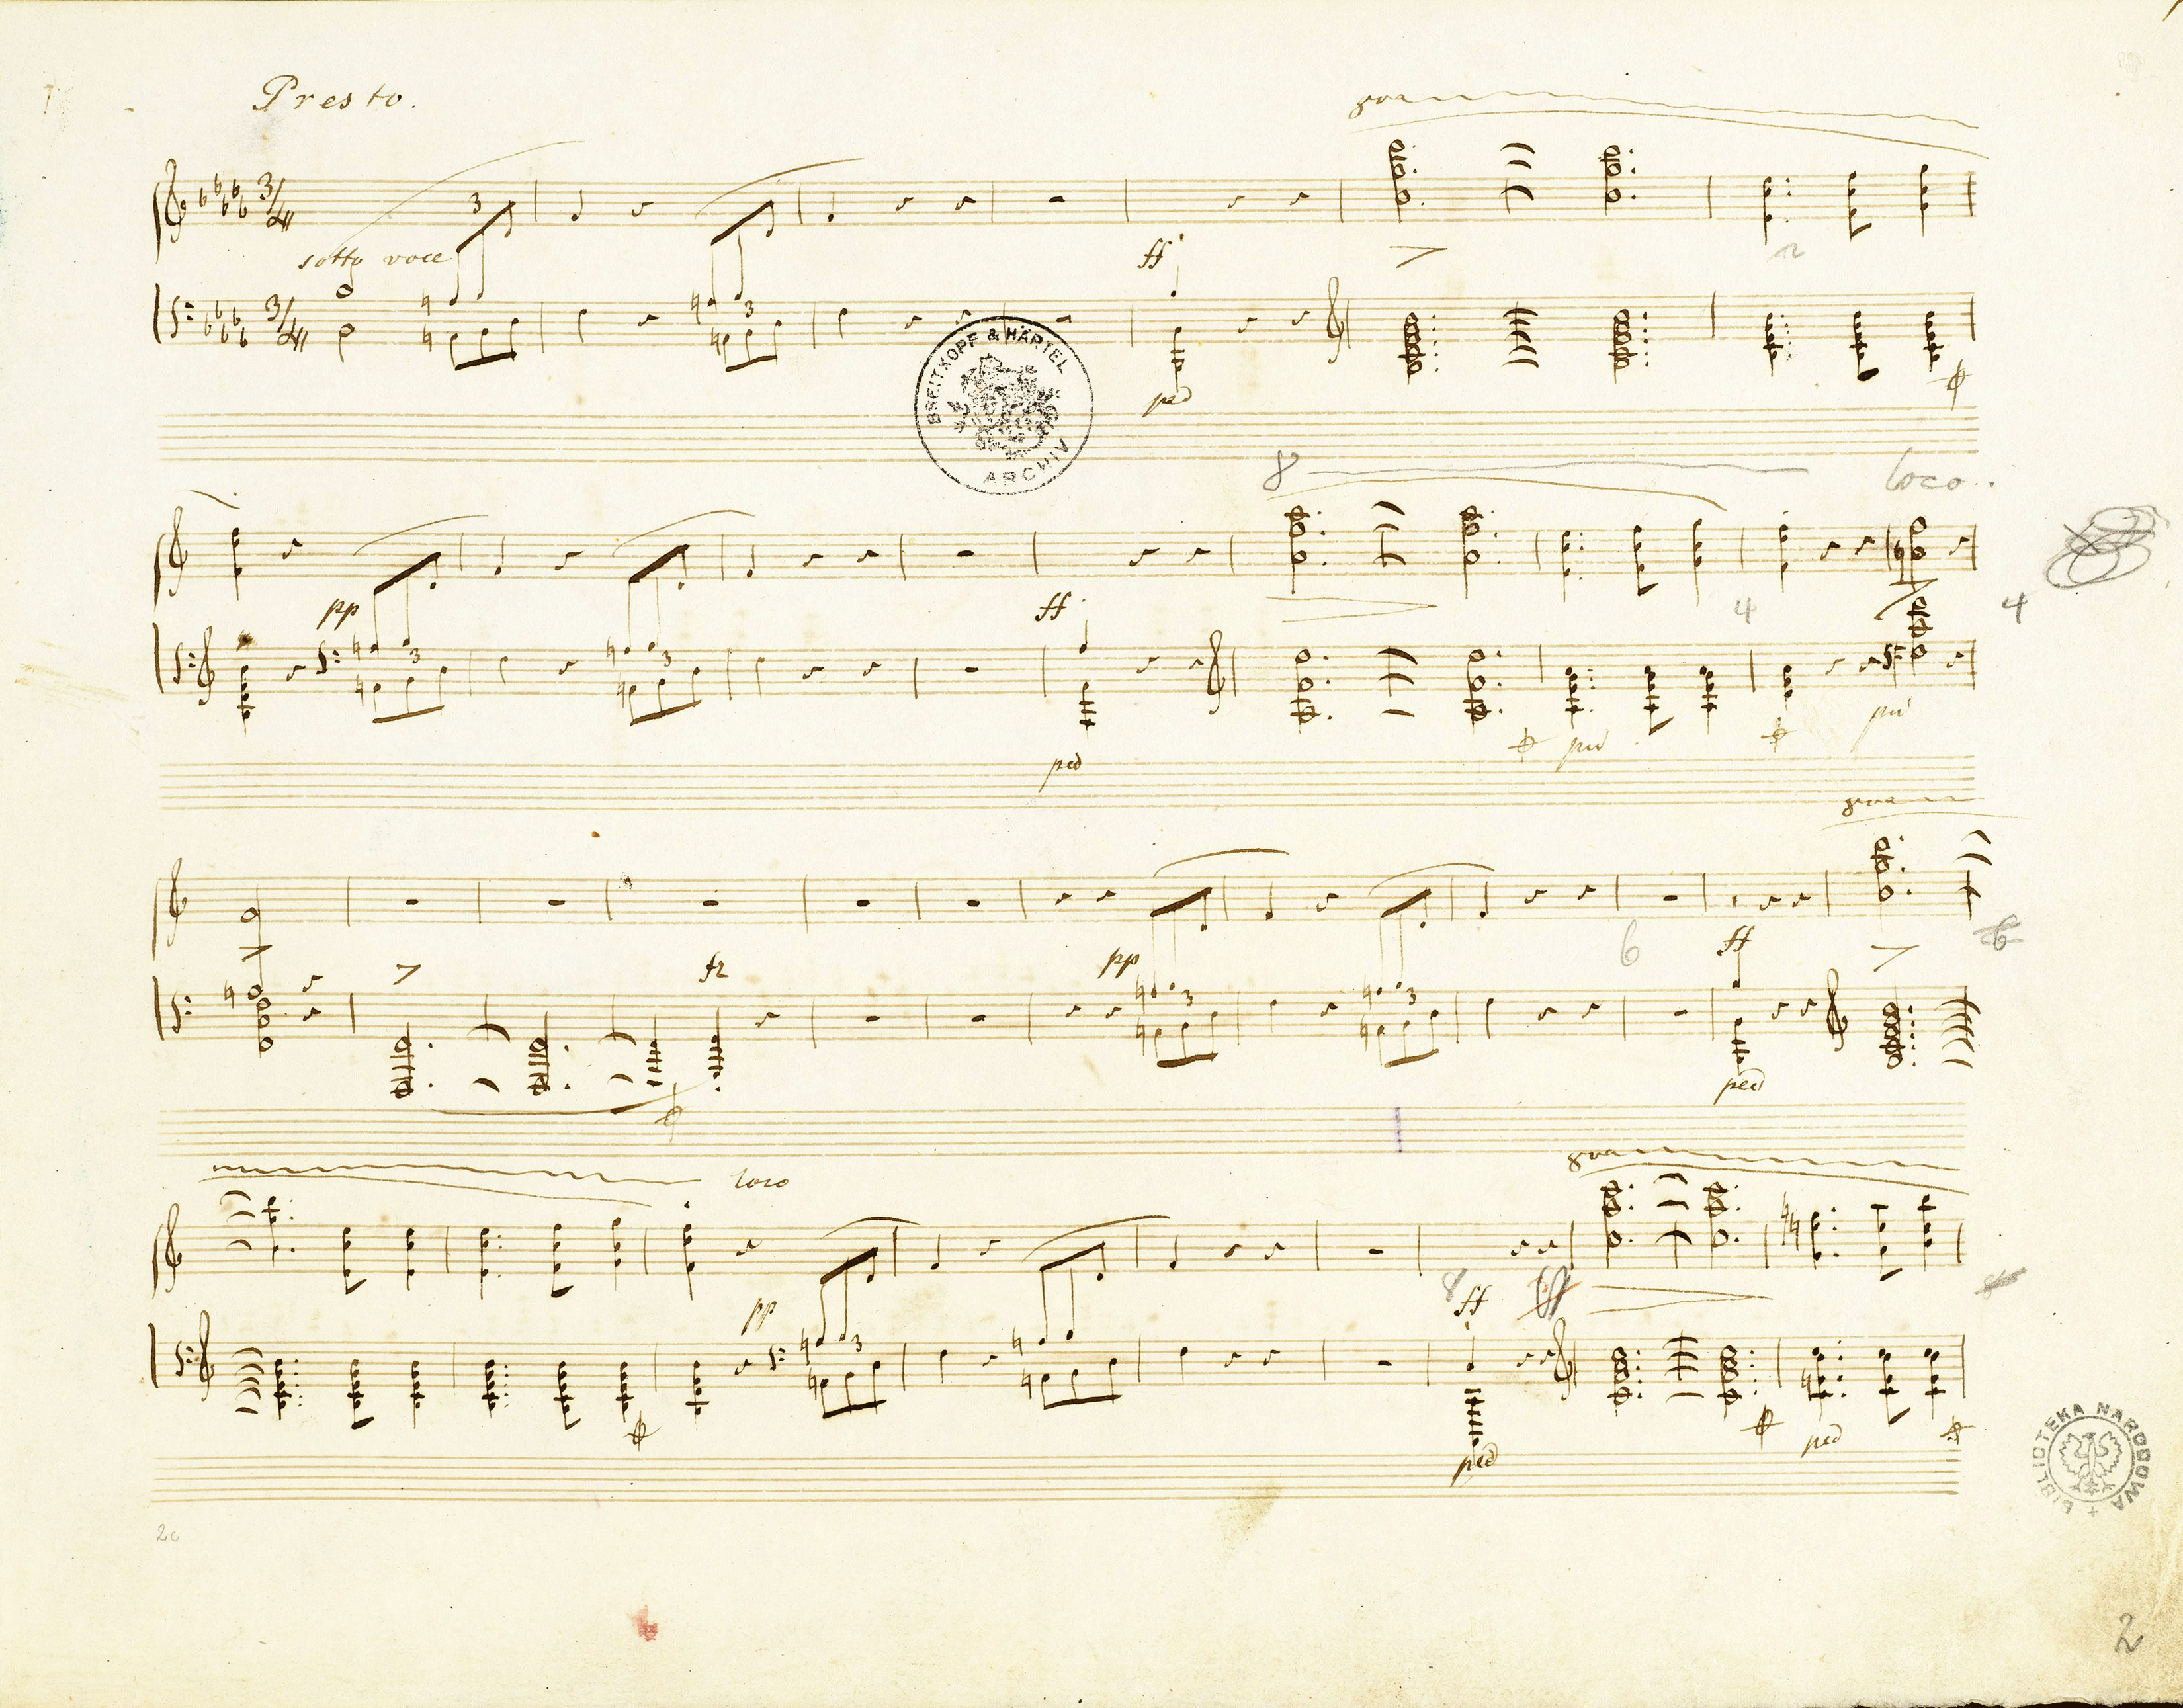 Presto.
8va
3/4
3
sotto voce
ff
3/4
3
BREITKOPF & HÄRTEL
ARCHIV
ped
2
8
loco.
pp
ff
4
4
3
3
ped
ped
ped
8va
pp
6
ff
6
tr
3
3
ped
loco
8va
pp
8
ff
ff
3
ped
ped
BIBLIOTEKA NARODOWA
20
2